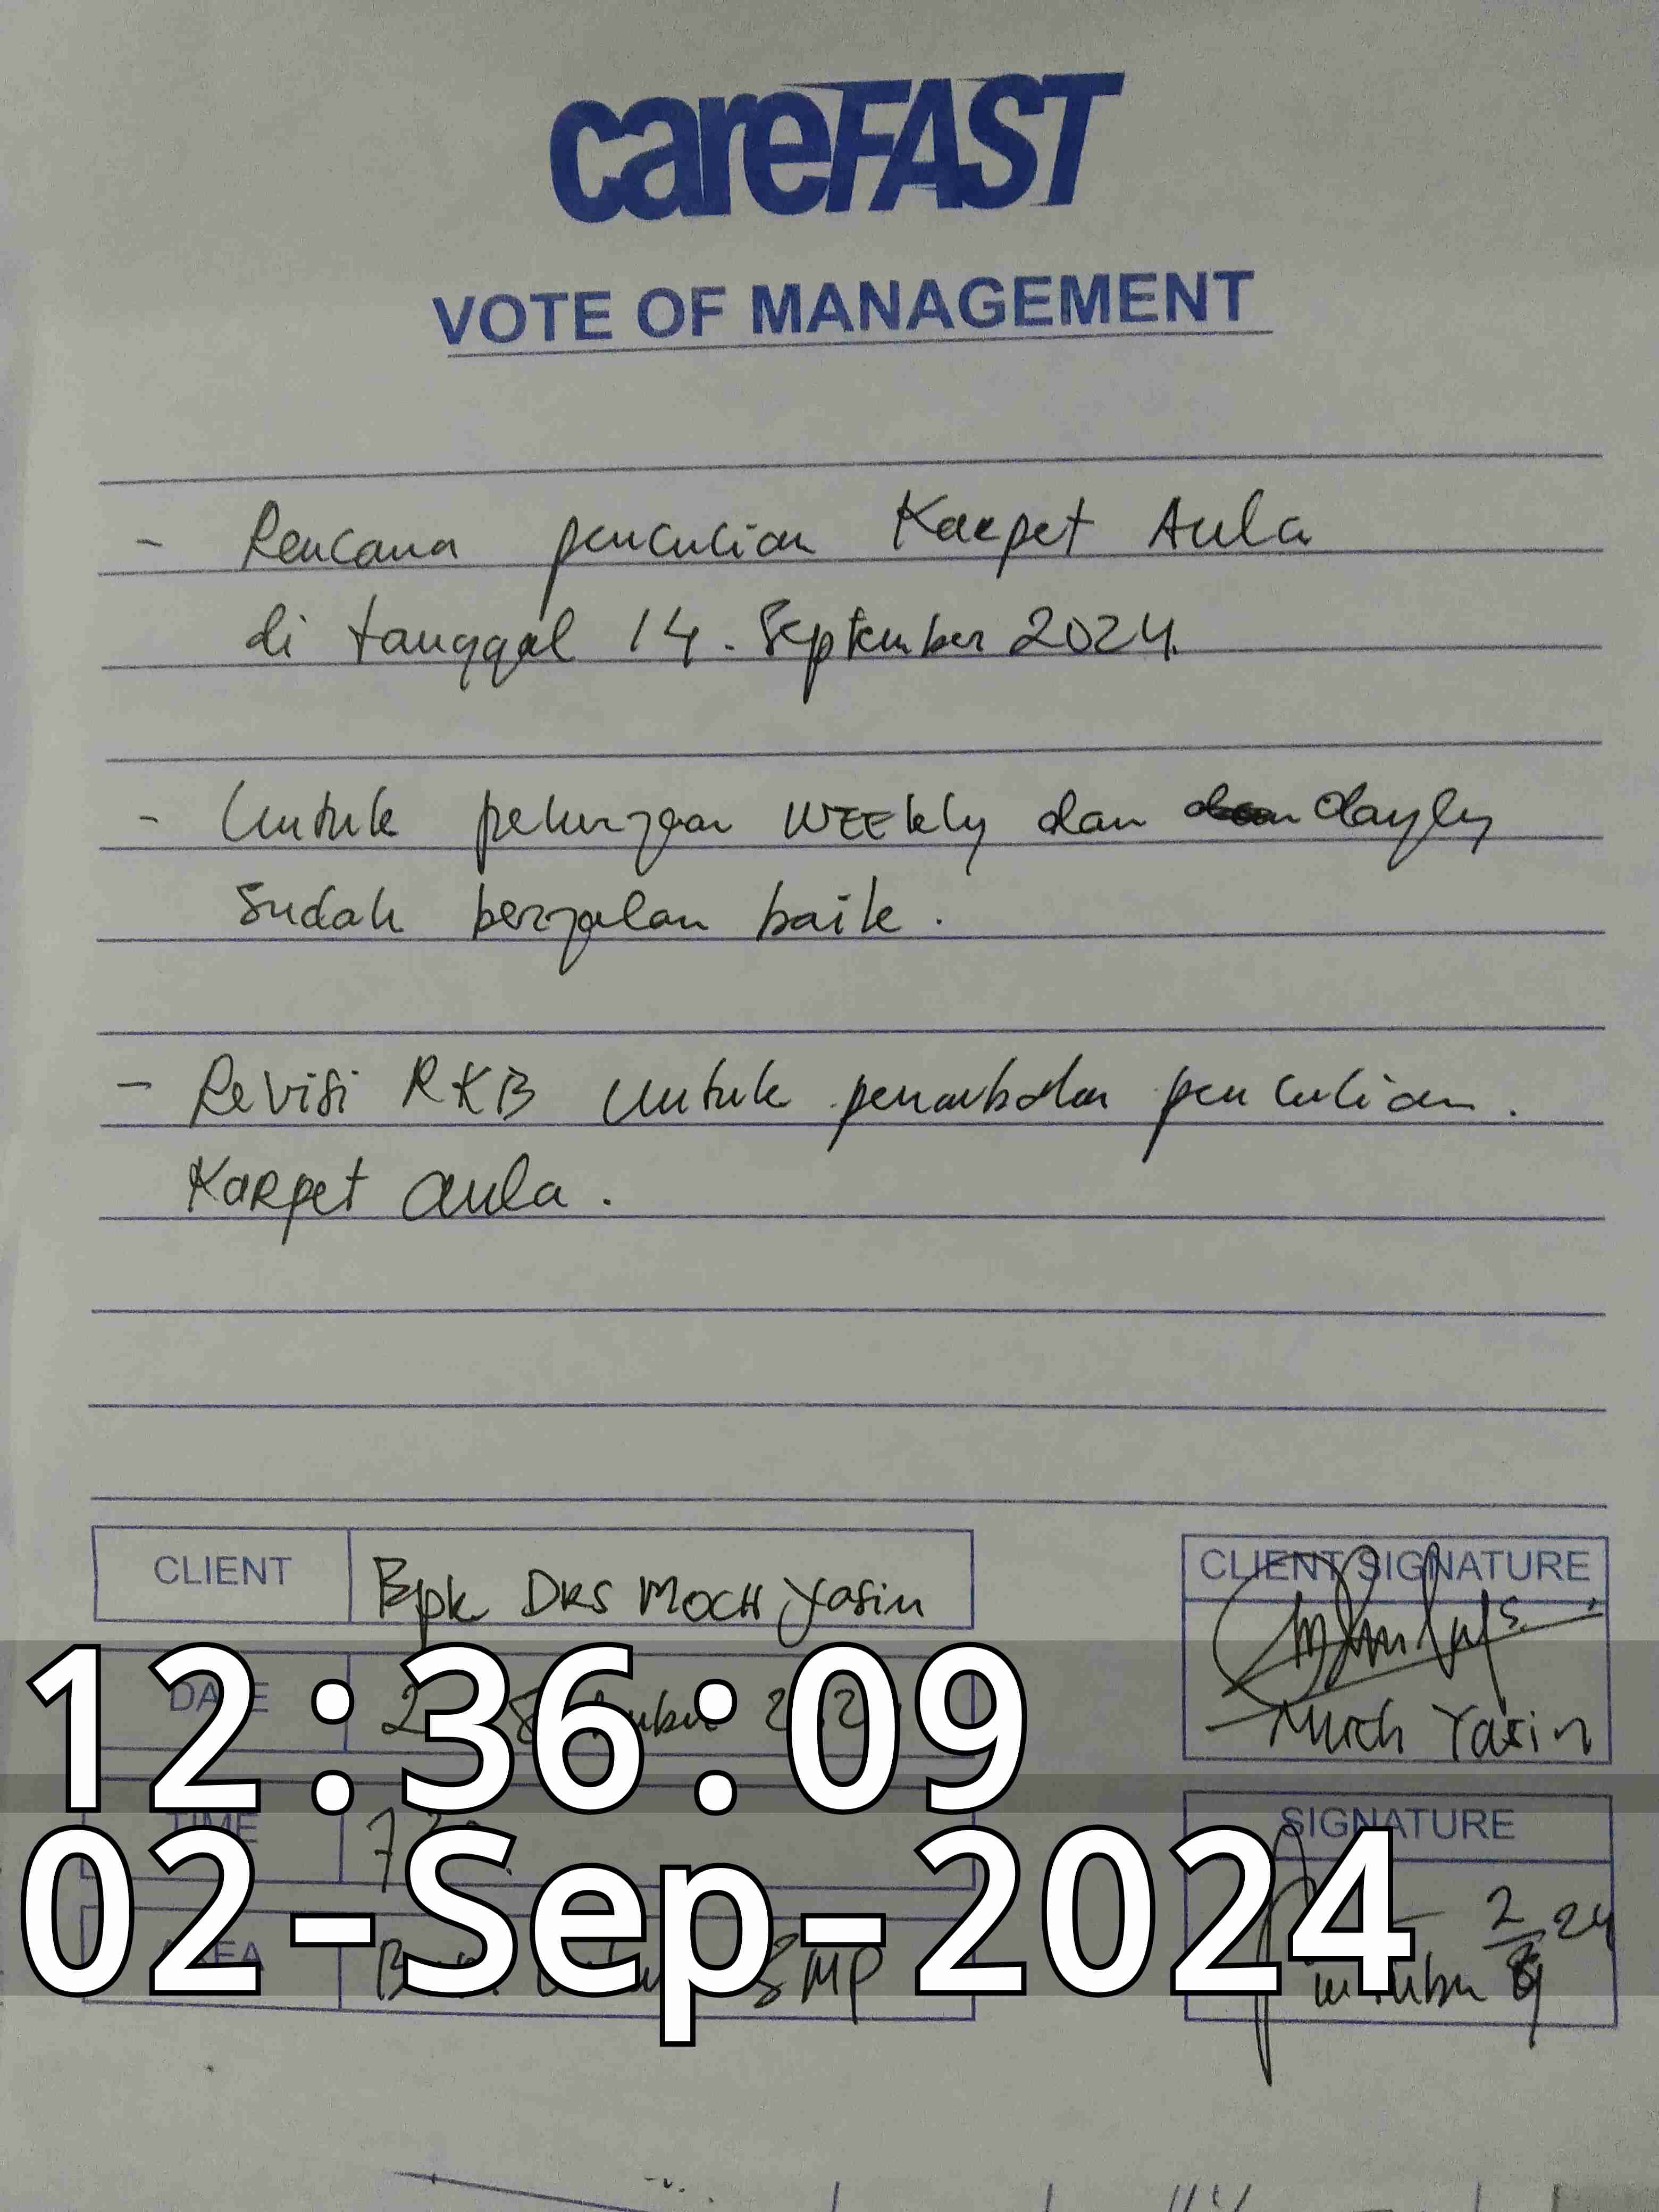 careFAST
VOTE OF MANAGEMENT
- Rencana pencucian Karpet Aula
di tanggal 14 - September 2024.
- Untuk pekerjaan WEEkly dan dayly
sudah berjalan baik.
- Revisi RKB untuk penambahan pencucian.
Karpet aula.
CLIENT
Bpk DRS MOCH Yasin
CLIENT SIGNATURE
Moch Yasin
DATE
2
12:36:09
TIME
SIGNATURE
02-Sep-2024
AREA
SMP
2/9 24